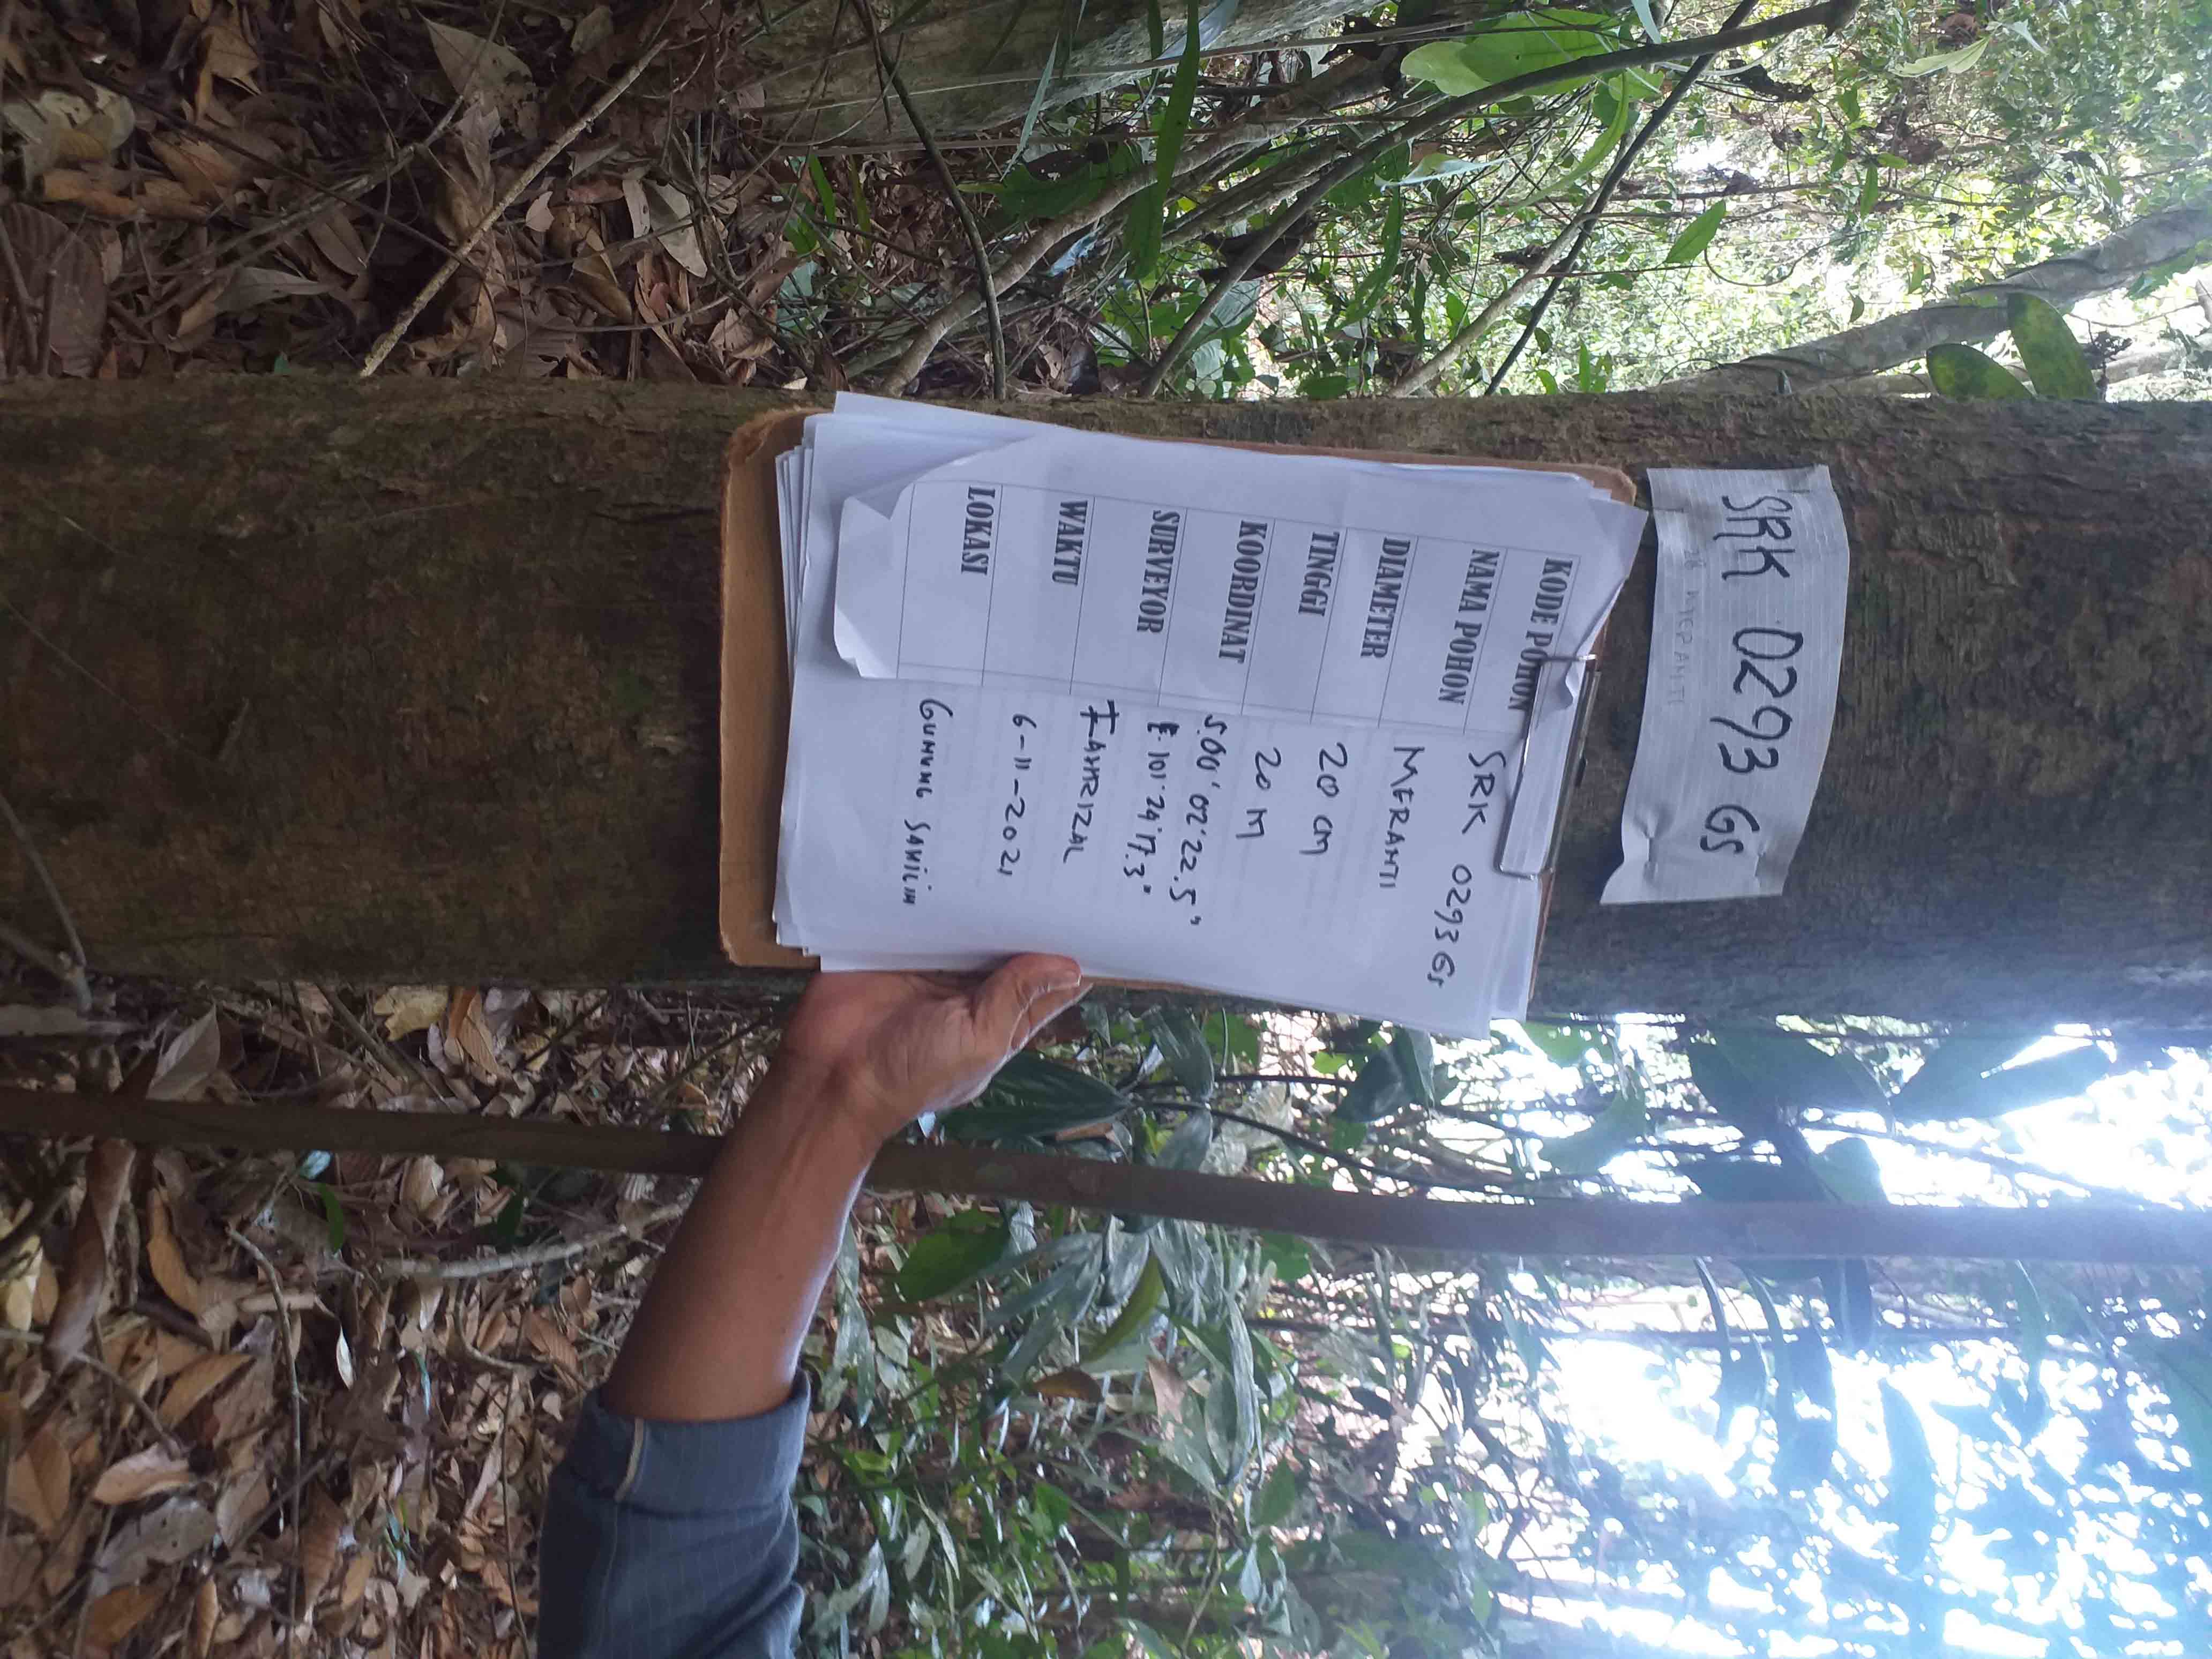 SRK 0293 GS
KODE POHON SRK 0293 GS
NAMA POHON MERANTI
DIAMETER 200 CM
TINGGI 20 M
KOORDINAT S.00° 02' 22.5"
E. 101° 24' 17.3"
SURVEYOR FAHRIZAL
WAKTU 6-11-2021
LOKASI GUNUNG SAHILIH